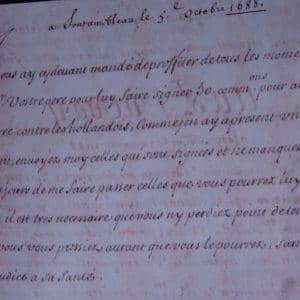 a Fontainebleau le 5.e Octobre 1688.
ous ay cydevant mandé de proffiter de tous les mome
Vostre pere pour luy faire signer 50. comm.ons pour a
re contre les hollandois, Comme j'en ay a present
envoyez moy celles qui sont signées et ne manques
jours de me faire passer celles que vous pourrez luy
il est tres necessaire que nous ny perdiez point de te
vous vous pressiez autant que vous le pourrez, san
judice a sa santé.